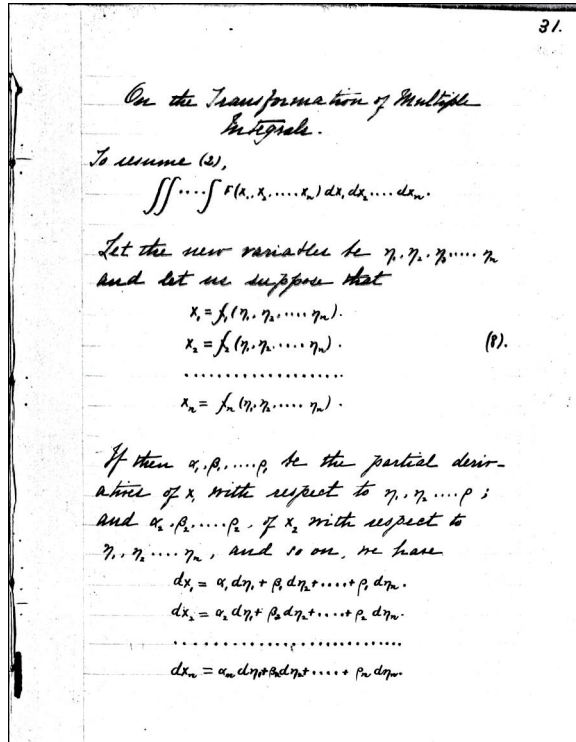 31.
On the Transformation of Multiple
Integrals.
To resume (2),
∬....∫ F(x₁, x₂, .... xₙ) dx₁ dx₂ .... dxₙ.
Let the new variables be η₁, η₂, η₃ .... ηₙ
and let us suppose that
x₁ = f₁(η₁, η₂, .... ηₙ).
x₂ = f₂(η₁, η₂ ..... ηₙ). (8).
...................
xₙ = fₙ(η₁, η₂, .... ηₙ).
If then α₁, β₁, .... ρ₁ be the partial deriv-
atives of x₁ with respect to η₁, η₂ .... ρ ;
and α₂, β₂, .... ρ₂, of x₂ with respect to
η₁, η₂ .... ηₙ, and so on, we have
dx₁ = α₁ dη₁ + β₁ dη₂ + .... + ρ₁ dηₙ.
dx₂ = α₂ dη₁ + β₂ dη₂ + .... + ρ₂ dηₙ.
...........................
dxₙ = αₙ dη₁ + βₙ dη₂ + .... + ρₙ dηₙ.